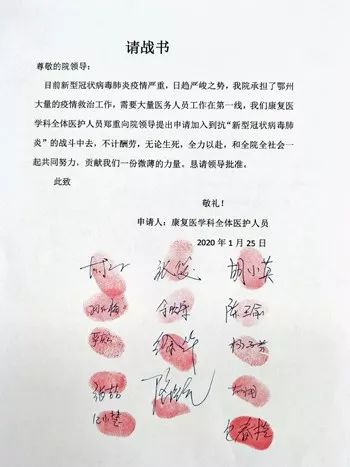 请战书
尊敬的院领导:
目前新型冠状病毒肺炎疫情严重,日趋严峻之势,我院承担了鄂州
大量的疫情救治工作,需要大量医务人员工作在第一线,我们康复医
学科全体医护人员郑重向院领导提出申请加入到抗“新型冠状病毒肺
炎”的战斗中去,不计酬劳,无论生死,全力以赴,和全院全社会一
起共同努力、贡献我们一份微薄的力量。恳请领导批准。
此致
敬礼!
申请人:康复医学科全体医护人员
2020 年 1 月 25 日
胡小英